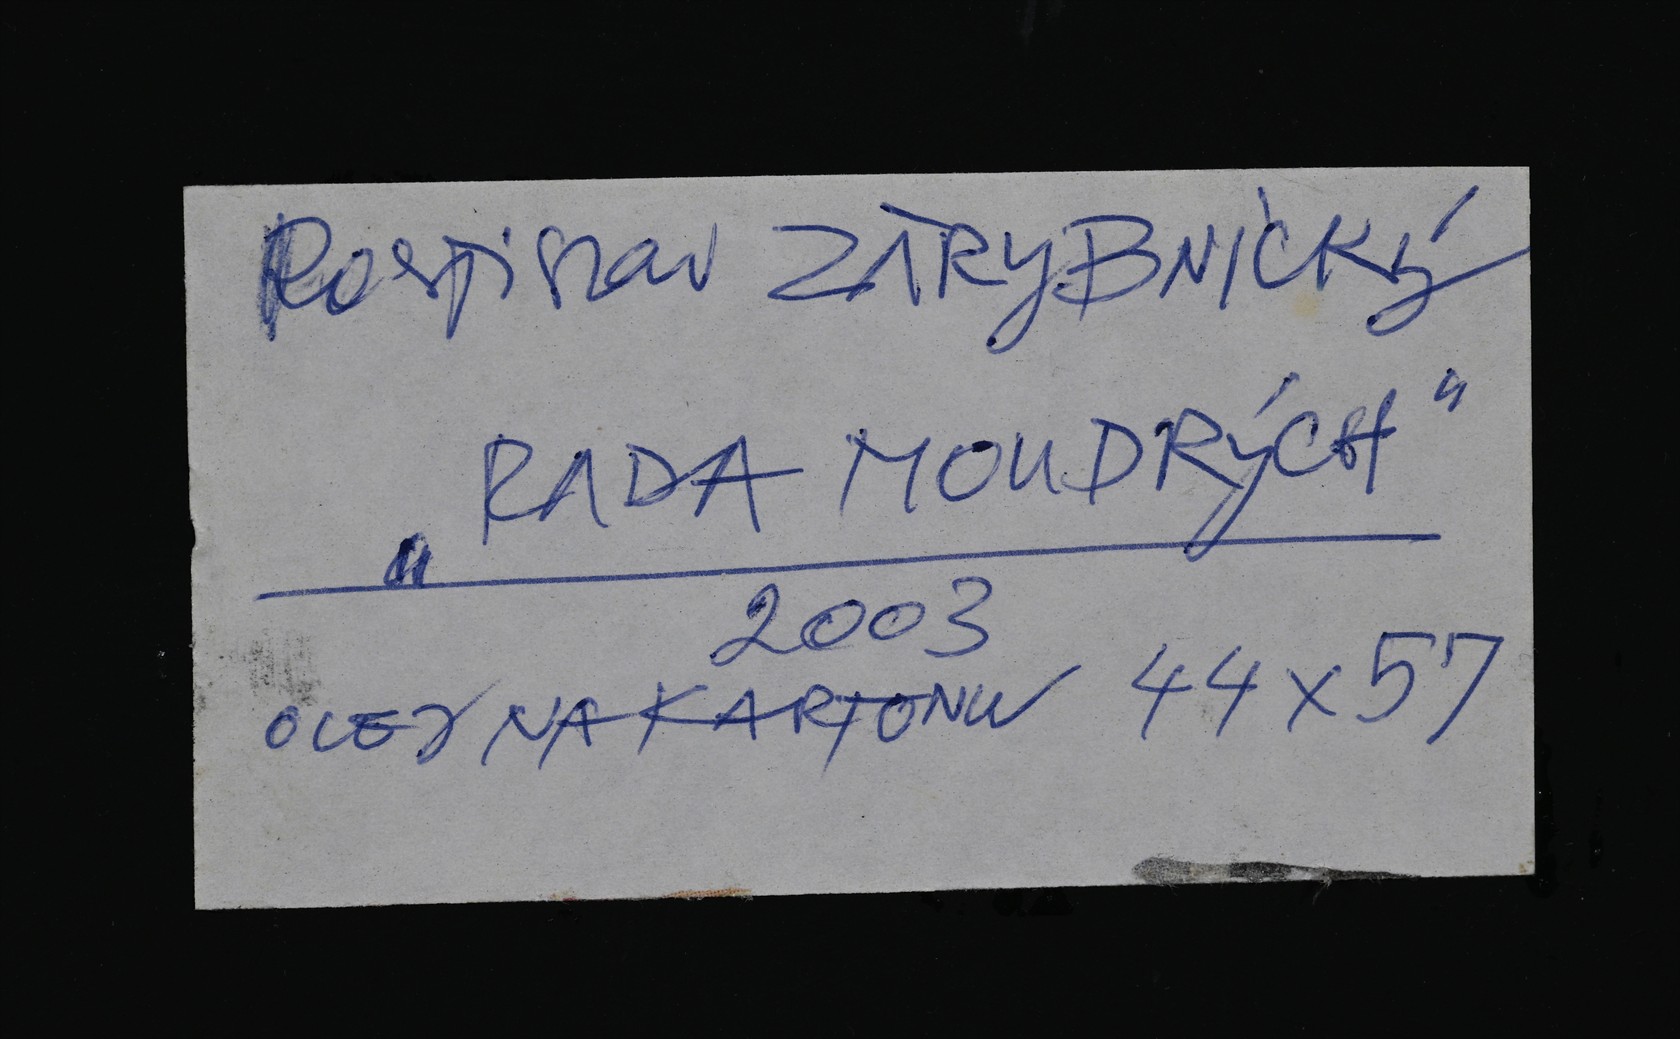 Rostislav ZÁRYBNICKÝ
„RADA MOUDRÝCH“
2003
OLEJ NA KARTONU 44x57